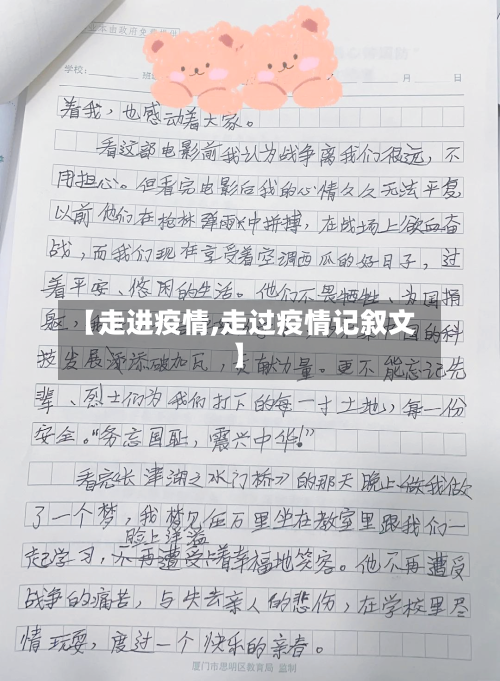 本由政府免费提供
学校:
月 日
着我，也感动着大家。
看这部电影前我认为战争离我们很远，不
用担心。但看完电影后我的心情久久无法平复
以前他们在枪林弹雨中拼搏，在战场上欲血奋
战，而我们现在享受着空调西瓜的好日子，过
着平安、悠闲的生活。他们不畏牺牲、为国捐
躯，
【走进疫情,走过疫情记叙文
】
国的科
技发展添添破加瓦，贡献力量。更不能忘记先
辈、烈士们为我们打下的每一寸土地，每一份
安全。“务忘国耻，震兴中华！”
看完《长津湖之水门桥》的那天晚上做我做
了一个梦，我梦见伍万里坐在教室里跟我们一
脸上洋溢
起学习，不再遭受着幸福地笑容。他不再遭受
战争的痛苦，与失去亲人的悲伤，在学校里尽
情玩耍，度过一个快乐的亲春。
厦门市思明区教育局 监制